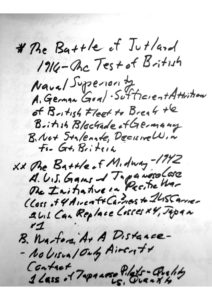 # The Battle of Jutland
1916 - The Test of British
Naval Superiority
A. German Goal - Sufficient Attrition
of British Fleet to Break the
British Blockade of Germany
B. Not Stalemate, Decisive Win
For Gt. Britain
** The Battle of Midway - 1942
A. U.S. Gains and Japanese Lose
The Initiative in Pacific War
1 Loss of 4 Aircraft Carriers to 1 US Carrier
2 U.S. Can Replace Losses x4, Japan
x1
B. Warfare At A Distance -
- No Visual, Only Aircraft
Contact
1 Loss of Japanese Pilots - Quality
vs. Quantity